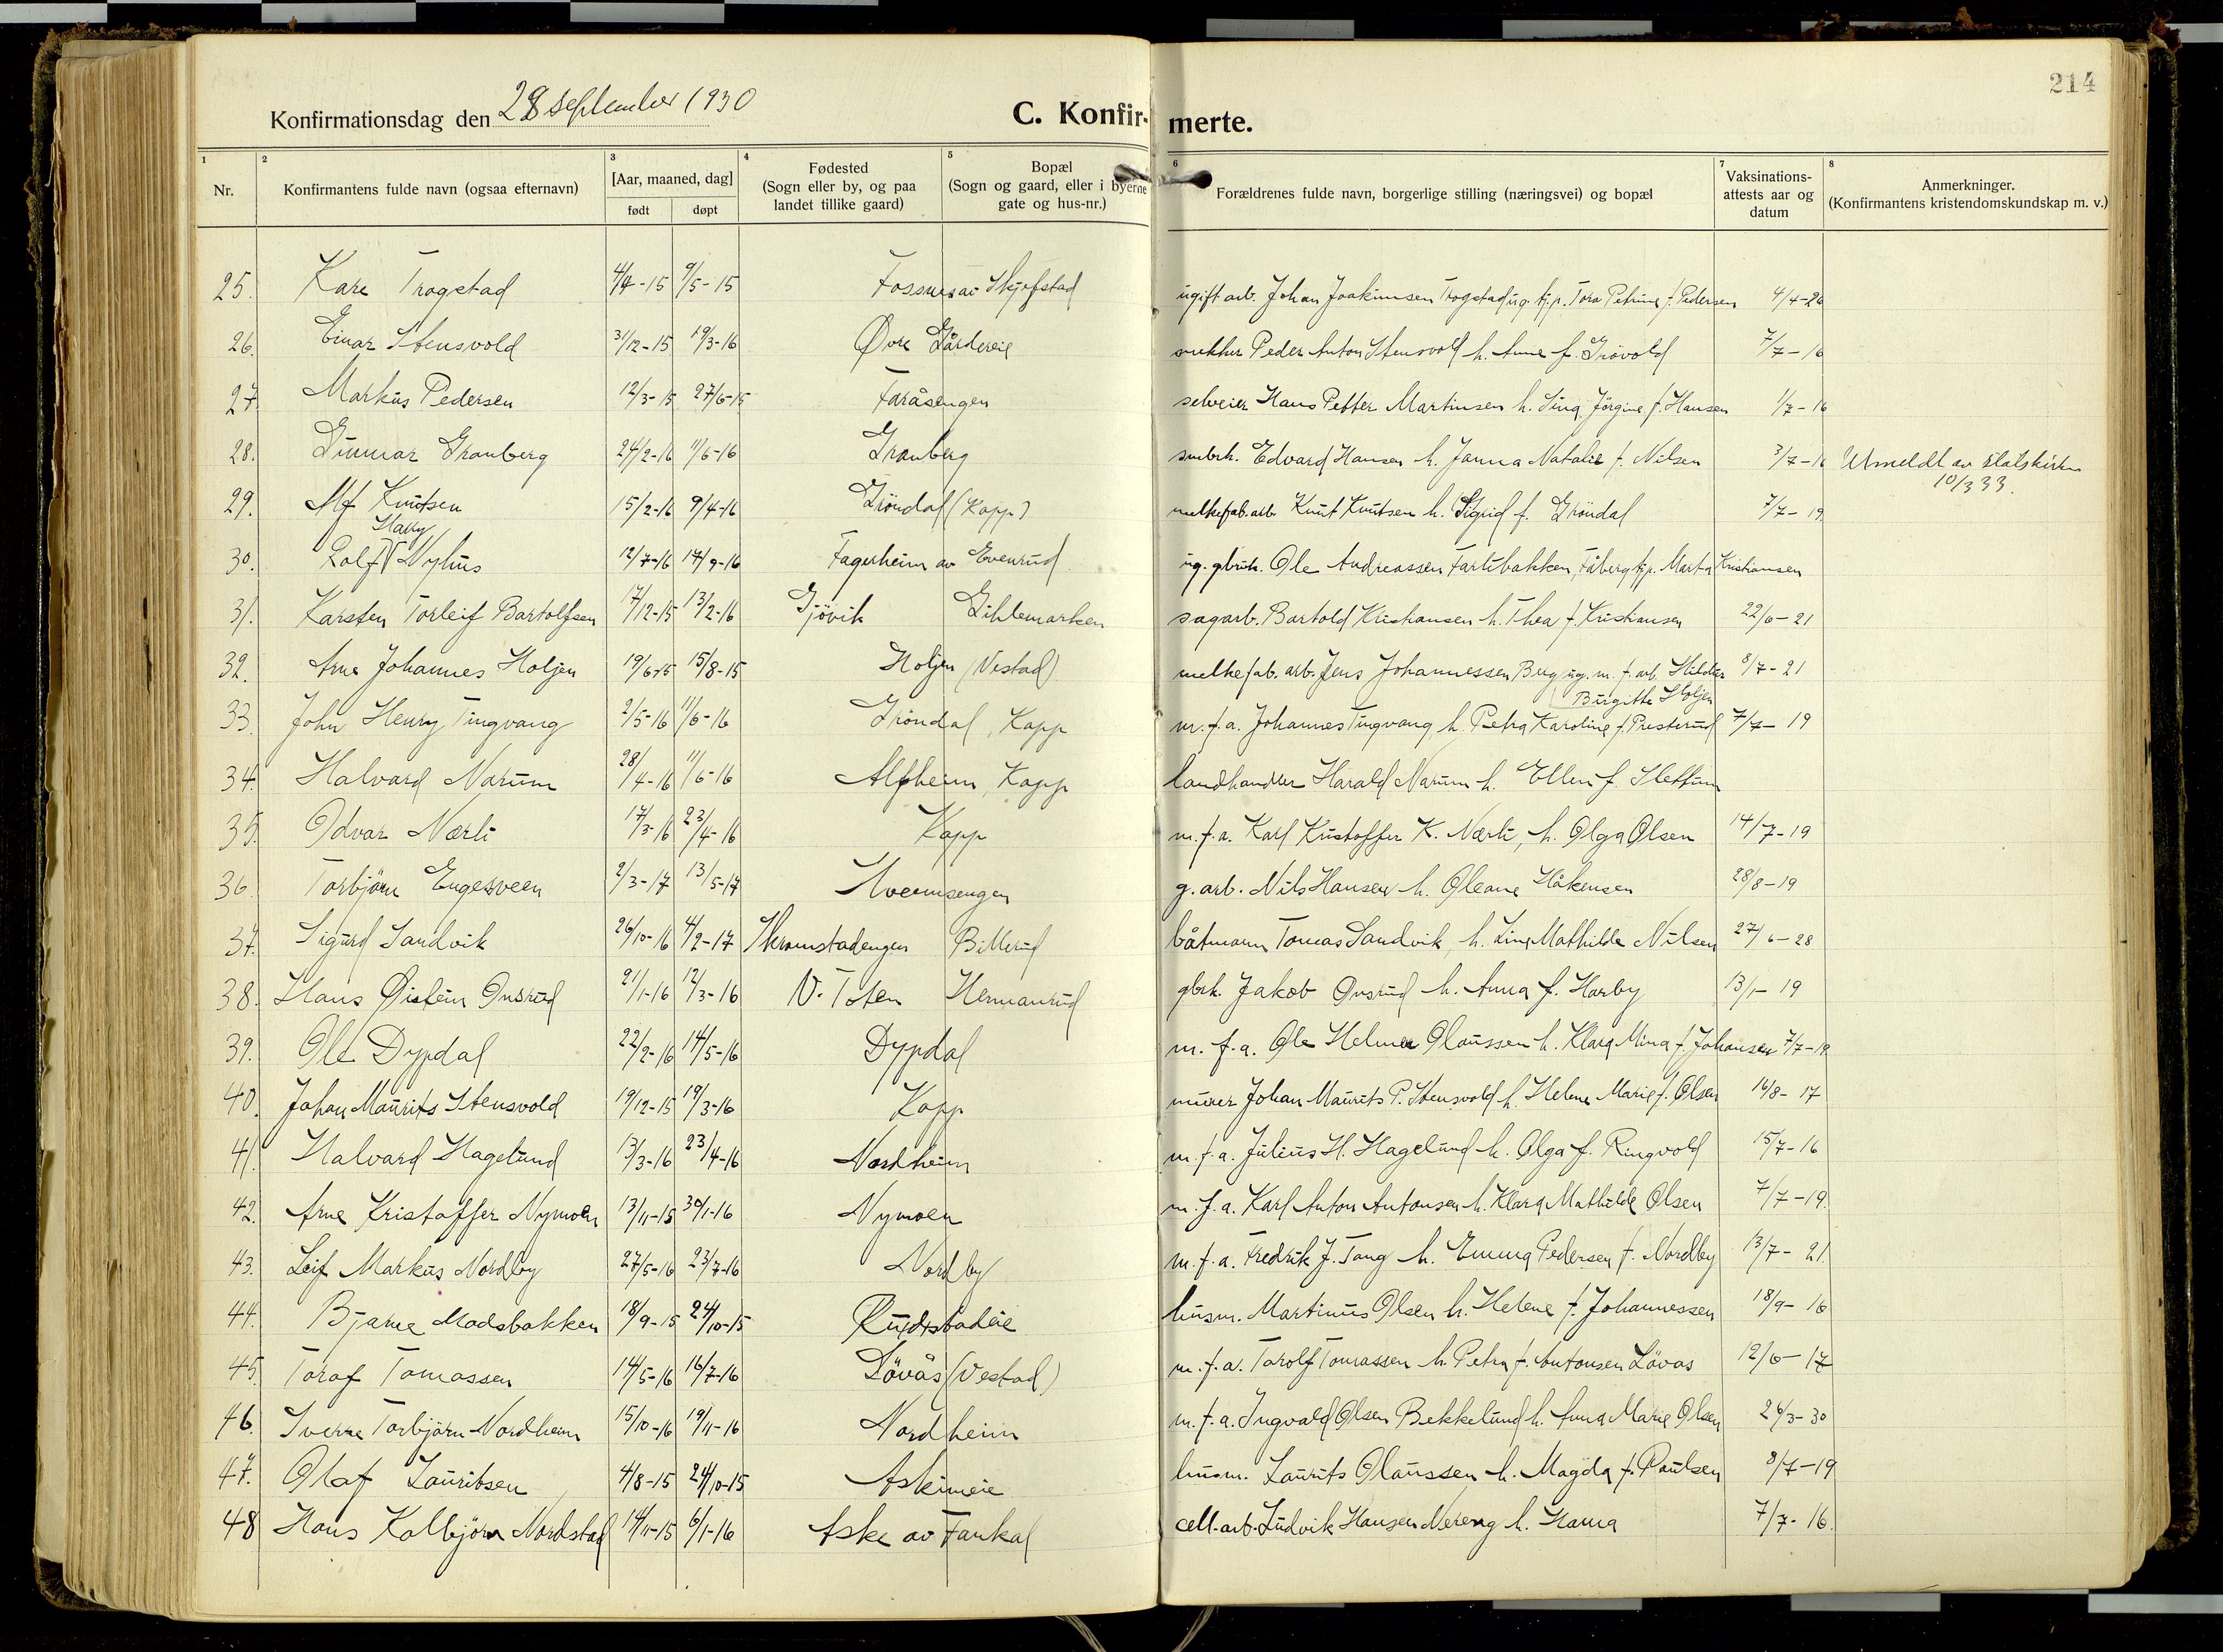 214
Konfirmationsdag den 28 september 1930
C. Konfirmerte.
1 2 3 4 5 6 7 8
Nr.
Konfirmantens fulde navn (ogsaa efternavn)
[Aar, maaned, dag]
født døpt
Fødested
(Sogn eller by, og paa
landet tillike gaard)
Bopæl
(Sogn og gaard, eller i byerne
gate og hus-nr.)
Forældrenes fulde navn, borgerlige stilling (næringsvei) og bopæl
Vaksinations-
attests aar og
datum
Anmerkninger.
(Konfirmantens kristendomskundskap m. v.)
25. Kare Trogstad 4/4-15 9/5-15 Fossnes av Skjefstad ugift arb. Johan Joakimsen Trogstad ug. tj.p. Tora Petrine f. Pedersen 4/4-26
26. Einar Stensvold 31/12-15 19/3-16 Øvre Gårdereie snekker Peder Anton Stensvold h. Anne f. Grövold 7/7-16
27. Markus Pedersen 12/3-15 27/6-15 Faråsengen selveier Hans Petter Martinsen h. Sina Jörgine f. Hansen 1/7-16
28. Gunnar Granberg 24/2-16 11/6-16 Granberg smbrk. Edvard Hansen h. Janna Natalie f. Nilsen 3/7-16 Utmeldt av statskirken
10/3 33.
29. Alf Knutsen 15/2-16 9/4-16 Gröndal (Kapp) melkefab.arb. Knut Knutsen h. Sigrid f. Gröndal 7/7-19
Harry
30. Rolf Nyhus 12/7-16 17/9-16 Fagerheim av Evenrud ug. gbruk. Ole Andreassen Fartibakken, Fåberg tj.p. Marta Kristiansen
31. Karsten Torleif Bartolfsen 17/12-15 13/2-16 Gjövik Gihlemarken sagarb. Bartold Kristiansen h. Thea f. Kristiansen 22/6-21
32. Arne Johannes Holjen 19/6-15 15/8-15 Holjen (Vestad) melkefab. arb. Jens Johannessen Berg ug. m. f. arb. Hilda 8/7-21
Birgitte Holjen
33. John Henry Tingvang 2/5-16 11/6-16 Gröndal, Kapp m.f.a. Johannes Tingvang h. Petra Karoline f. Presterud 7/7-19
34. Halvard Narum 28/4-16 11/6-16 Alfheim, Kapp landhandler Harald Narum h. Ellen f. Slettum
35. Odvar Nærli 17/3-16 23/4-16 Kapp m.f.a. Karl Kristoffer K. Nærli, h. Olga Olsen 14/7-19
36. Torbjörn Engesveen 2/3-17 13/5-17 Hveemsengen g.arb. Nils Hansen h. Oleane Håkensen 28/8-19
37. Sigurd Sandvik 26/10-16 4/2-17 Skramstadengen Billerud båtmann Tomas Sandvik, h. Lina Mathilde Nilsen 27/6-28
38. Hans Øistein Onsrud 21/1-16 12/3-16 V. Toten Hermanrud gbrk. Jakob Onsrud h. Anna f. Harby 13/1-19
39. Ole Dypdal 22/2-16 14/5-16 Dypdal m.f.a. Ole Helmer Olaussen h. Klara Mina f. Johansen 7/7-19
40. Johan Maurits Stensvold 19/12-15 19/3-16 Kapp murer Johan Maurits P. Stensvold h. Helene Marie f. Olsen 16/8-17
41. Halvard Hagelund 13/3-16 23/4-16 Nordheim m.f.a. Julius H. Hagelund h. Olga f. Ringvold 15/7-16
42. Arne Kristoffer Nymoen 13/11-15 30/1-16 Nymoen m.f.a. Karl Anton Antonsen h. Klara Mathilde Olsen 7/7-19.
43. Leif Markus Nordby 27/5-16 23/7-16 Nordby m.f.a. Fredrik J. Tang h. Emma Pedersen f. Nordby 13/7-21.
44. Bjarne Madsbakken 18/9-15 24/10-15 husm. Martinus Olsen h. Helene f. Johannessen 18/9-16
45. Toraf Tomassen 14/5-16 16/7-16 Lövås (Vestad) m.f.a. Tarolf Tomassen h. Petra f. Antonsen Lövas 12/6-17
46. Sverre Torbjörn Nordheim 15/10-16 19/11-16 Nordheim m.f.a. Ingvald Olsen Bekkelund h. Anna Marie Olsen 26/3-30
47. Olaf Lauritsen 4/8-15 24/10-15 Askimeie husm. Laurits Olaussen h. Magda f. Paulsen 8/7-19
48 Hans Kolbjörn Nordstad 14/11-15 6/1-16 Aske av Fankal cell.arb. Ludvik Hansen Nereng h. Hanna 7/7-16.